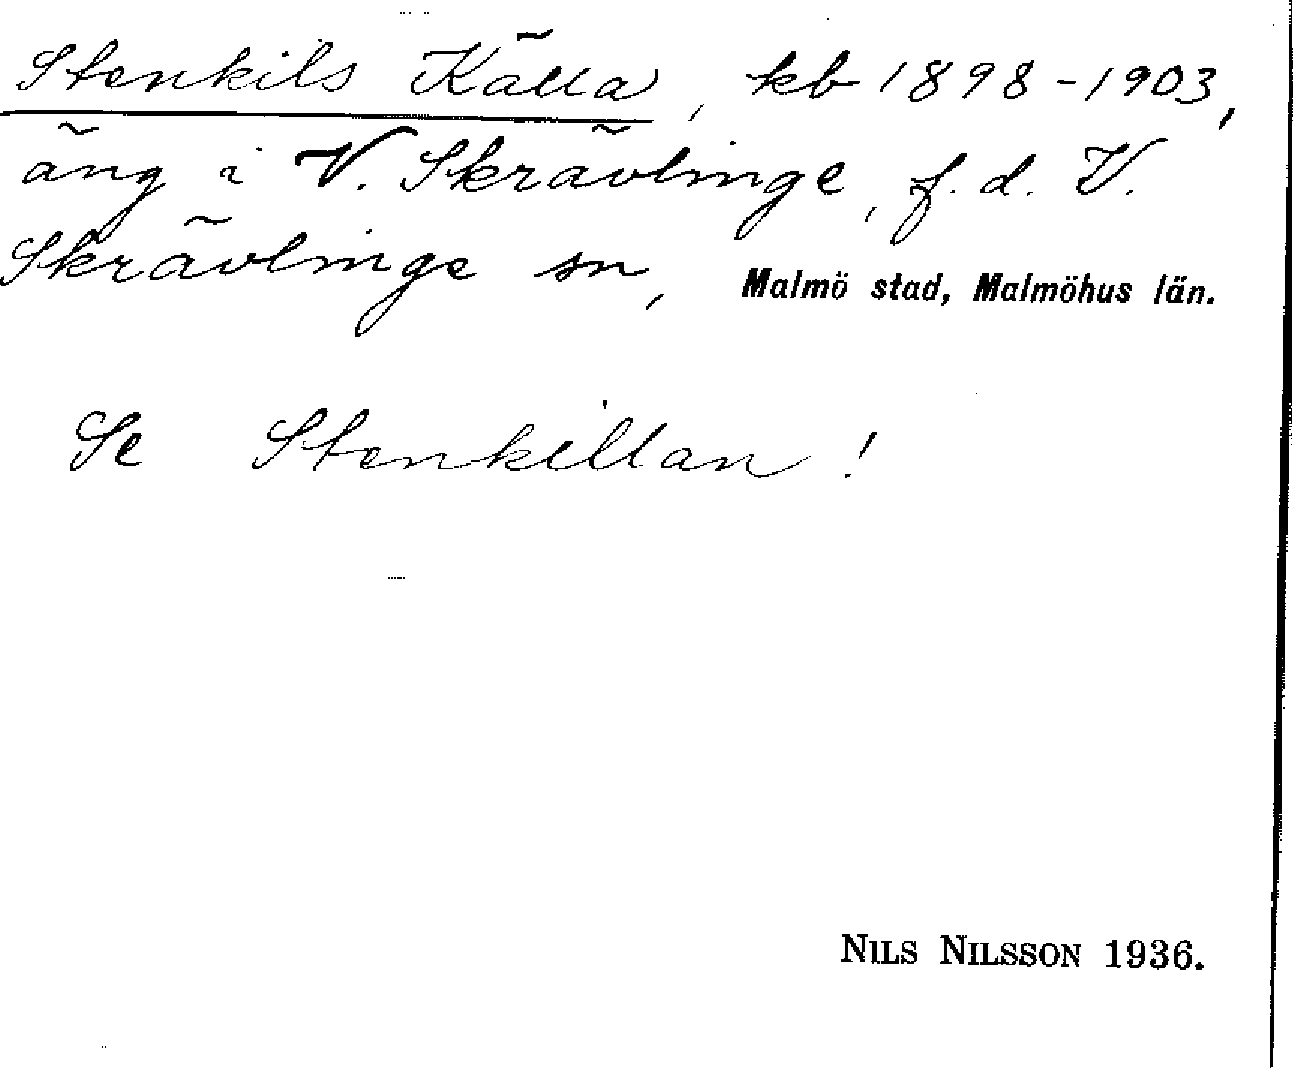 Stenkils Källa, kb 1898-1903,
äng i V. Skrävlinge, f. d. V.
Skrävlinge sn, Malmö stad, Malmöhus län.
Se Stenkillan!
NILS NILSSON 1936.